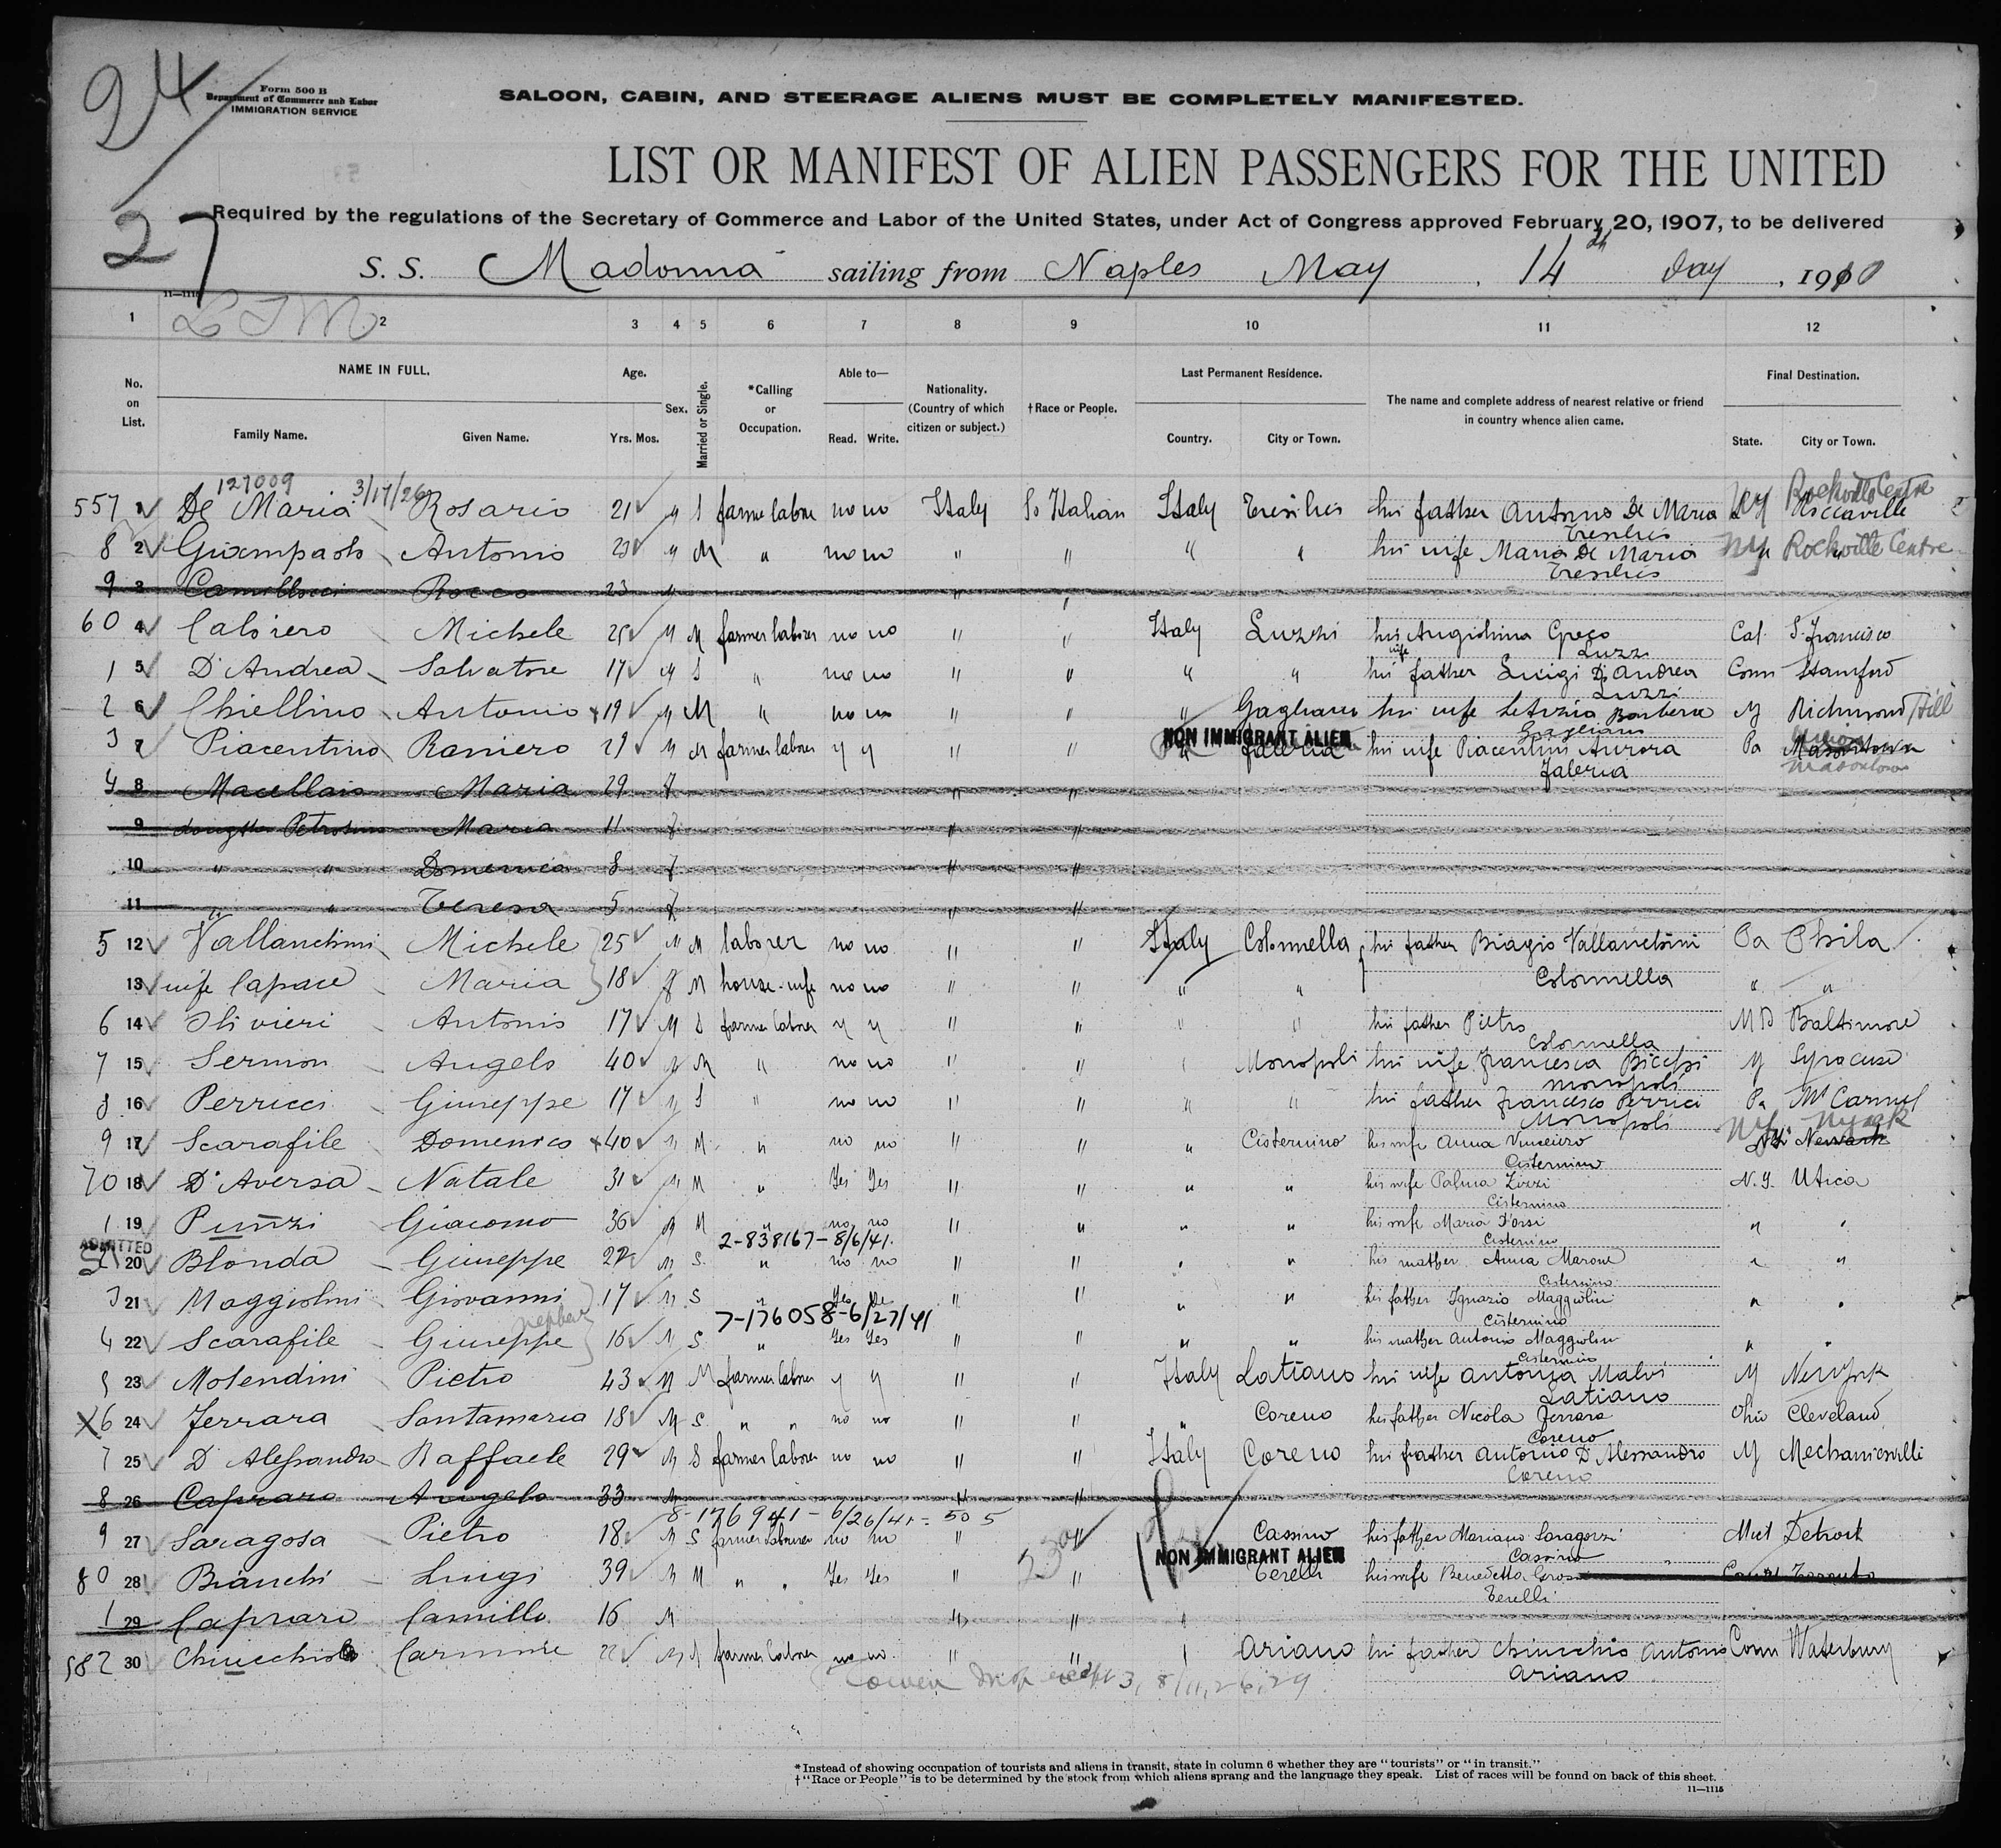 94
27
Form 500 B
Department of Commerce and Labor
IMMIGRATION SERVICE
SALOON, CABIN, AND STEERAGE ALIENS MUST BE COMPLETELY MANIFESTED.
LIST OR MANIFEST OF ALIEN PASSENGERS FOR THE UNITED
Required by the regulations of the Secretary of Commerce and Labor of the United States, under Act of Congress approved February 20, 1907, to be delivered
S. S. Madonna sailing from Naples May 14th day, 1910
1 2 3 4 5 6 7 8 9 10 11 12
No. on List. NAME IN FULL. Family Name. Given Name. Age. Yrs. Mos. Sex. Married or Single. *Calling or Occupation. Able to— Read. Write. Nationality. (Country of which citizen or subject.) †Race or People. Last Permanent Residence. Country. City or Town. The name and complete address of nearest relative or friend in country whence alien came. Final Destination. State. City or Town.
127009 3/17/26 Rockville Centre
557 1 De Maria Rosario 21 M S farmer labore no no Italy So Italian Italy his father Antonio De Maria NY
8 2 Giampaolo Antonio M " no no " " " " his wife Maria De Maria NY Rockville Centre
9 3 Rocco 23 M " "
60 4 Michele 25 M M farmer laborer no no " " Italy Luzzi his wife Angiolina Greco Cal. S. Francisco
Luzzi
1 5 D'Andrea Salvatore 17 M S " no no " " " " his father Luigi D'Andrea Conn Stamford
Luzzi
2 6 Chiellino Antonio 19 M M " no no " " " Gagliano his wife Letizia Barbera NY Richmond Hill
Gagliano
NON IMMIGRANT ALIEN
3 7 Piacentino Raniero 29 M M farmer laborer y y " " Faleria his wife Piacentini Aurora Pa Masontown
Faleria Masontown
4 8 Macellaio Maria 29 f " "
9 daughter Petrosino Maria 11 f " "
10 " " Domenica 8 f " "
11 " " Teresa 5 f " "
5 12 Vallanchini Michele 25 M M laborer no no " " Italy Colonnella his father Biagio Vallanchini Pa Phila
Colonnella
13 wife Capace Maria 18 f M house-wife no no " " " " " "
6 14 Olivieri Antonio 17 M S farmer laborer y y " " " " his father Pietro MD Baltimore
Colonnella
7 15 Sermon Angelo 40 M M " no no " " " Monopoli his wife Francesca NY Syracuse
Monopoli
8 16 Perricci Giuseppe 17 M S " no no " " " " his father Francesco Perricci Pa Mt Carmel
Monopoli
NY Nyack
9 17 Scarafile Domenico 40 M M " no no " " " Cisternino his wife Anna Newark
Cisternino
70 18 D'Aversa Natale 31 M M " Yes Yes " " " " his wife Palma Zizzi N.Y. Utica
Cisternino
1 19 Punzi Giacomo 36 M M " no no " " " " his wife Maria D'Orsi " "
Cisternino
ADMITTED 2-838167-8/6/41.
2 20 Blonda Giuseppe M S " no no " " " " his mother Anna " "
Cisternino
3 21 Maggiolini Giovanni 17 M S " Yes " " " " his father Ignazio Maggiolini " "
Cisternino
nephew 7-176058-6/27/41
4 22 Scarafile Giuseppe 16 M S " Yes Yes " " " " his mother Antonia Maggiolini " "
Cisternino
5 23 Molendini Pietro 43 M M farmer laborer y y " " Italy Latiano his wife Antonia Malvi NY New York
Latiano
X6 24 Ferrara Santamaria 18 M S " " no no " " " Coreno his father Nicola Ferrara Ohio Cleveland
Coreno
7 25 D'Alessandro Raffaele 29 M S farmer laborer no no " " Italy Coreno his father Antonio D'Alessandro NY Mechanicville
Coreno
8 26 Capraro Angelo 33 M " "
8-176941-6/26/41=505
9 27 Saragosa Pietro 18 M S farmer laborer no no " " Cassino his father Mariano Saragozzi Mich Detroit
Cassino
NON IMMIGRANT ALIEN
80 28 Bianchi Luigi 39 M M " " Yes Yes " " Terelli his wife Benedetta Toronto
Terelli
1 29 Capraro Camillo 16 M " "
582 30 Carmine 22 M farmer laborer no no " " Ariano his father Chiucchio Antonio Conn Waterbury
Ariano
3, 8/11, 26, 29
*Instead of showing occupation of tourists and aliens in transit, state in column 6 whether they are "tourists" or "in transit."
†"Race or People" is to be determined by the stock from which aliens sprang and the language they speak. List of races will be found on back of this sheet.
11—1115